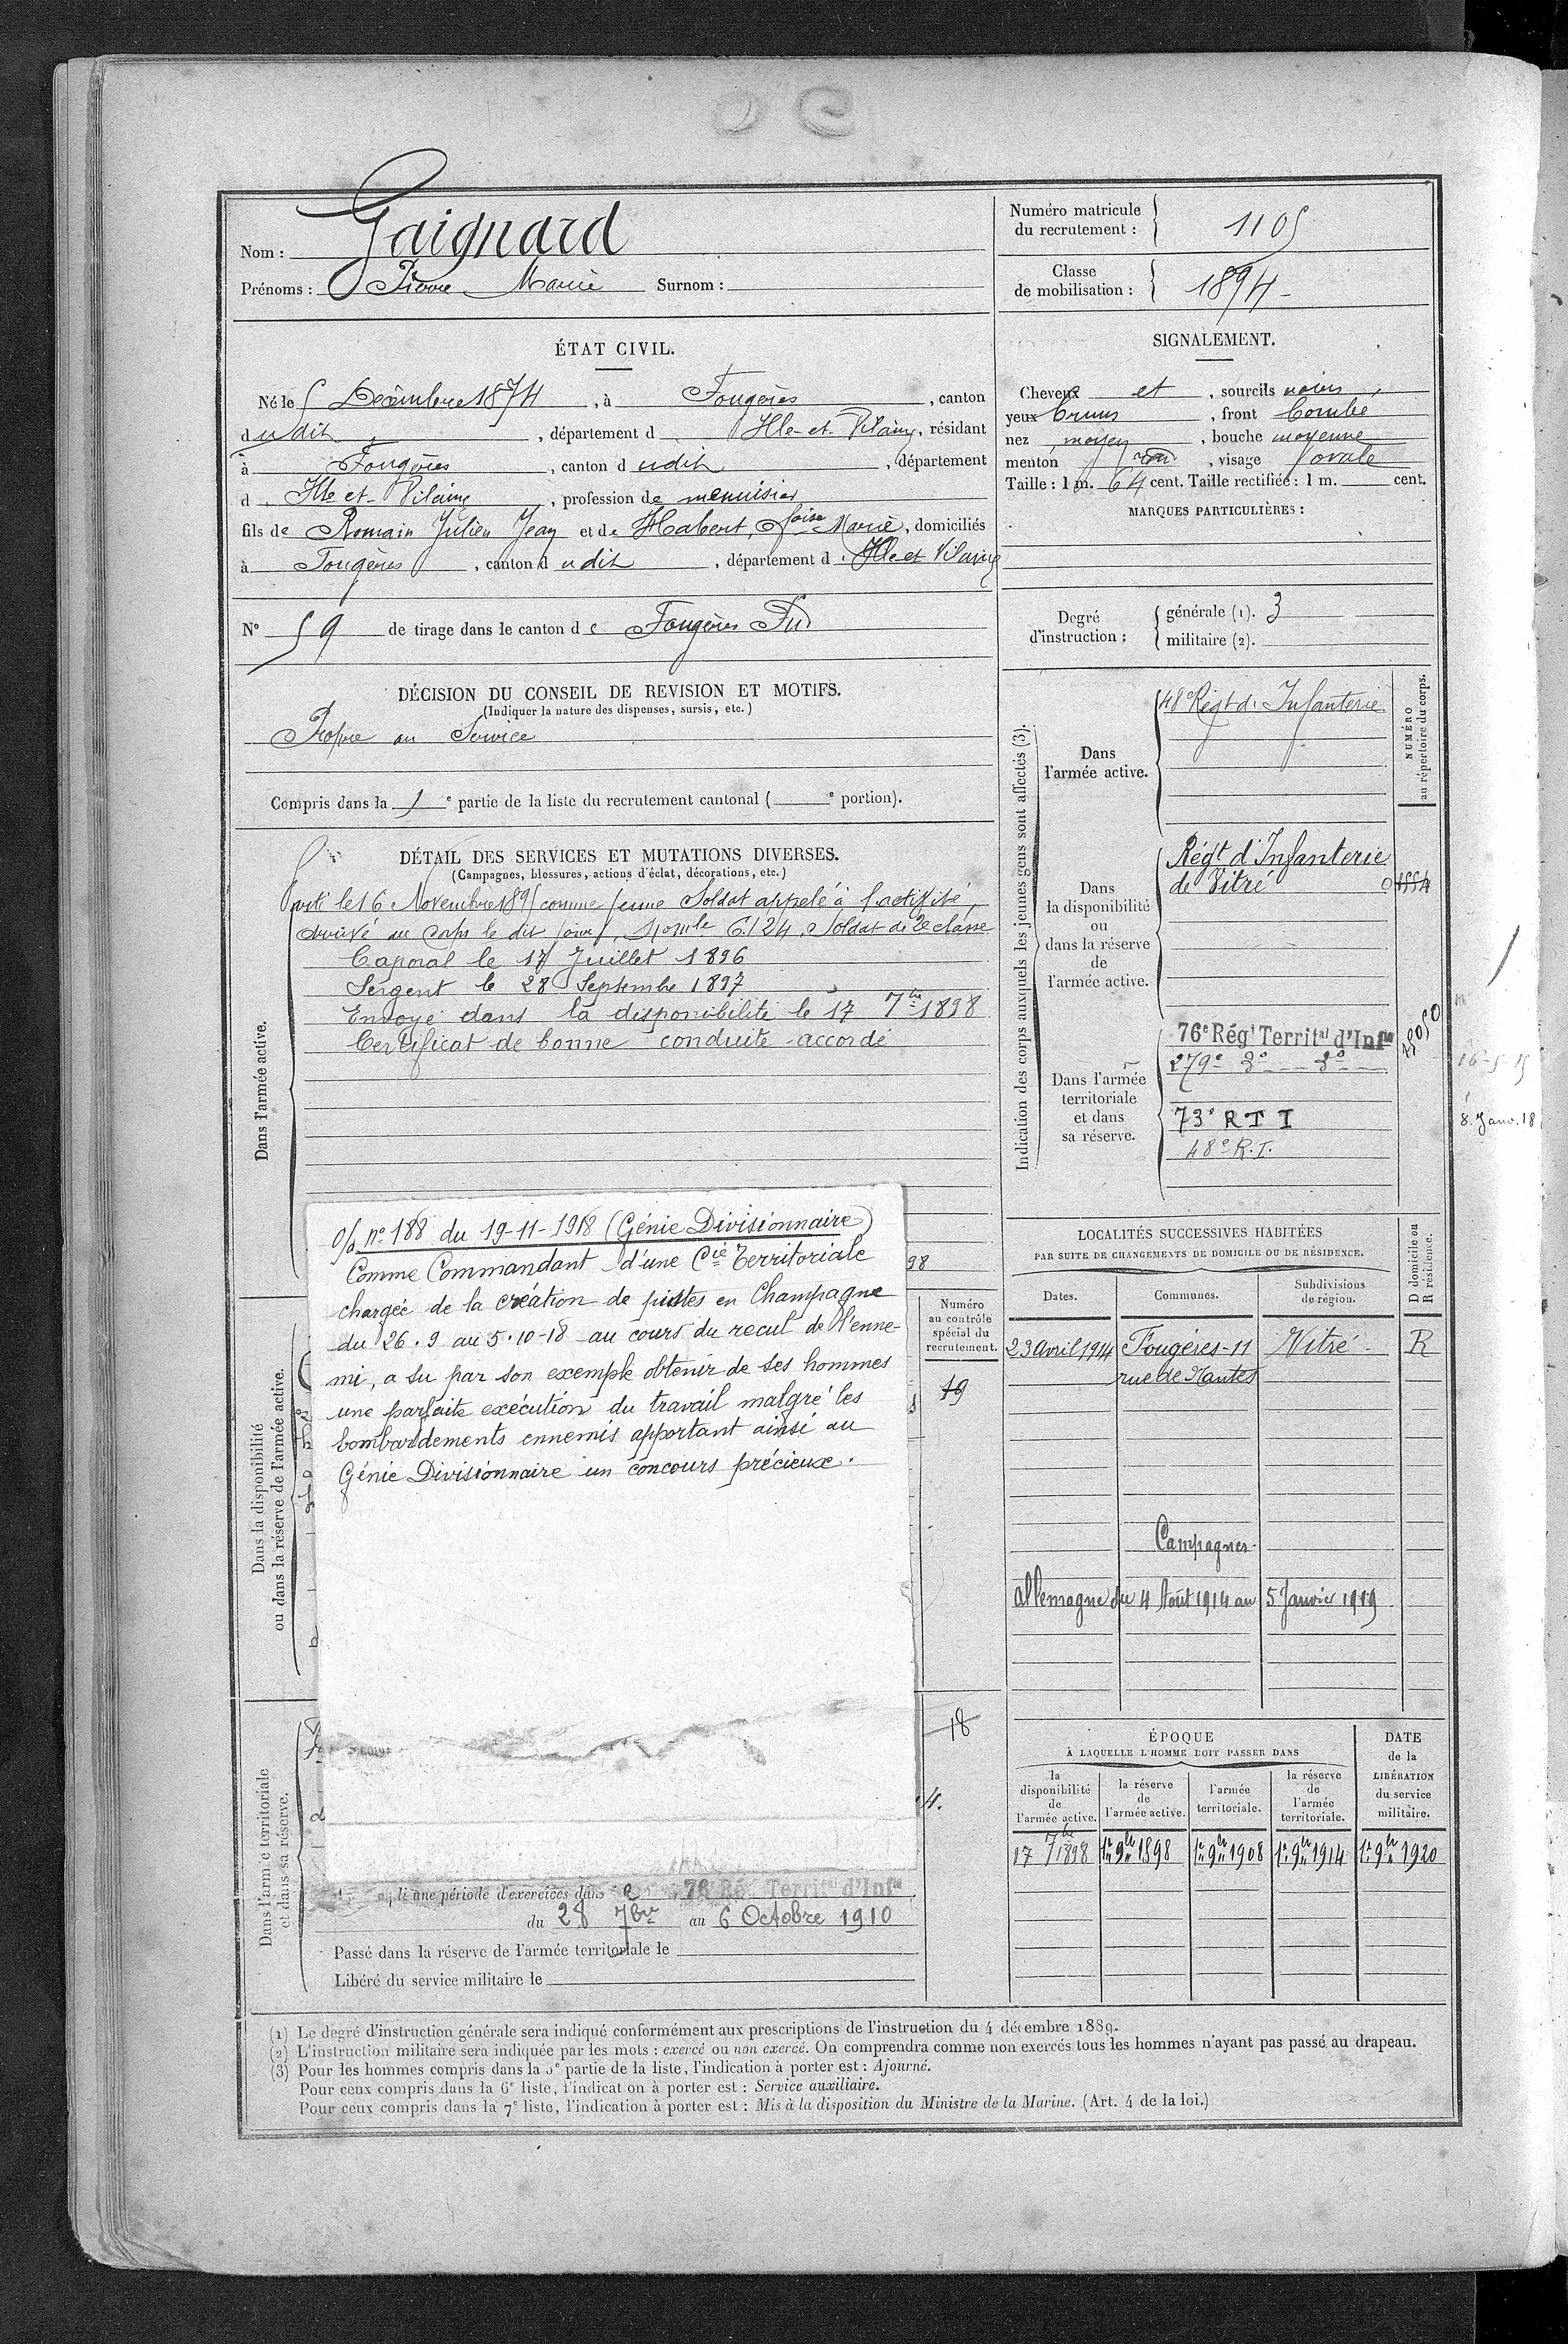 Nom : Gaignard
Prénoms : Pierre Marie Surnom :
Numéro matricule du recrutement : 1105
Classe de mobilisation : 1894
ÉTAT CIVIL.
Né le 5 Décembre 1874, à Fougères, canton
dudit, département d Ille-et-Vilaine, résidant
à Fougères, canton dudit, département
d Ille et Vilaine, profession de menuisier
fils de Romain Julien Jean et de Habert, Foise Marie, domiciliés
à Fougères, canton dudit, département d Ille et Vilaine
N° 59 de tirage dans le canton de Fougères Sud
SIGNALEMENT.
Cheveux et, sourcils noirs,
yeux bruns, front bombé
nez moyen, bouche moyenne
menton rond, visage ovale
Taille : 1 m. 64 cent. Taille rectifiée : 1 m. cent.
MARQUES PARTICULIÈRES :
Degré d'instruction :
générale (1). 3
militaire (2).
DÉCISION DU CONSEIL DE REVISION ET MOTIFS.
(Indiquer la nature des dispenses, sursis, etc.)
Propre au Service
Compris dans la 1e partie de la liste du recrutement cantonal ( e portion).
DÉTAIL DES SERVICES ET MUTATIONS DIVERSES.
(Campagnes, blessures, actions d'éclat, décorations, etc.)
Dans l'armée active.
Parti le 16 Novembre 1895 comme jeune Soldat appelé à l'activité,
arrivé au Corps le dit jour, No mle 6124, Soldat de 2e classe
Caporal le 17 Juillet 1896
Sergent le 28 Septembre 1897
Envoyé dans la disponibilité le 17 7bre 1898
Certificat de bonne conduite accordé
98
o/D n° 188 du 19-11-1918 (Génie Divisionnaire)
Comme Commandant d'une Cie Territoriale
chargée de la création de pistes en Champagne
du 26.9 au 5.10-18 au cours du recul de l'enne-
mi, a su par son exemple obtenir de ses hommes
une parfaite exécution du travail malgré les
bombardements ennemis apportant ainsi au
Génie Divisionnaire un concours précieux.
Dans la disponibilité
ou dans la réserve de l'armée active.
Numéro
au contrôle
spécial du
recrutement.
19
18
Dans l'armée territoriale
et dans sa réserve.
4.
une période d'exercices dans le 76 Ré Territal d'Infie
du 28 7bre au 6 Octobre 1910
Passé dans la réserve de l'armée territoriale le
Libéré du service militaire le
Indication des corps auxquels les jeunes gens sont affectés (3).
NUMÉRO
au répertoire du corps.
Dans
l'armée active.
48e Régt d'Infanterie
Dans
la disponibilité
ou
dans la réserve
de
l'armée active.
Régt d'Infanterie
de Vitré
Dans l'armée
territoriale
et dans
sa réserve.
76e Régt Territal d'Infie
279e do do
73e R T I
48e R.I.
8. Janv. 18
LOCALITÉS SUCCESSIVES HABITÉES
PAR SUITE DE CHANGEMENTS DE DOMICILE OU DE RÉSIDENCE.
Dates.
Communes.
Subdivisions
de région.
D domicile ou
R résidence.
23 Avril 1914 Fougères-11 Vitré R
rue de Nantes
Campagnes.
Allemagne du 4 Août 1914 au 5 Janvier 1919
ÉPOQUE
À LAQUELLE L'HOMME DOIT PASSER DANS
la
disponibilité
de
l'armée active.
la réserve
de
l'armée active.
l'armée
territoriale.
la réserve
de
l'armée
territoriale.
DATE
de la
LIBÉRATION
du service
militaire.
17 7bre 1898 1er 9bre 1898 1er 9bre 1908 1er 9bre 1914 1er 9bre 1920
(1) Le degré d'instruction générale sera indiqué conformément aux prescriptions de l'instruction du 4 décembre 1889.
(2) L'instruction militaire sera indiquée par les mots : exercé ou non exercé. On comprendra comme non exercés tous les hommes n'ayant pas passé au drapeau.
(3) Pour les hommes compris dans la 5e partie de la liste, l'indication à porter est : Ajourné.
Pour ceux compris dans la 6e liste, l'indication à porter est : Service auxiliaire.
Pour ceux compris dans la 7e liste, l'indication à porter est : Mis à la disposition du Ministre de la Marine. (Art. 4 de la loi.)